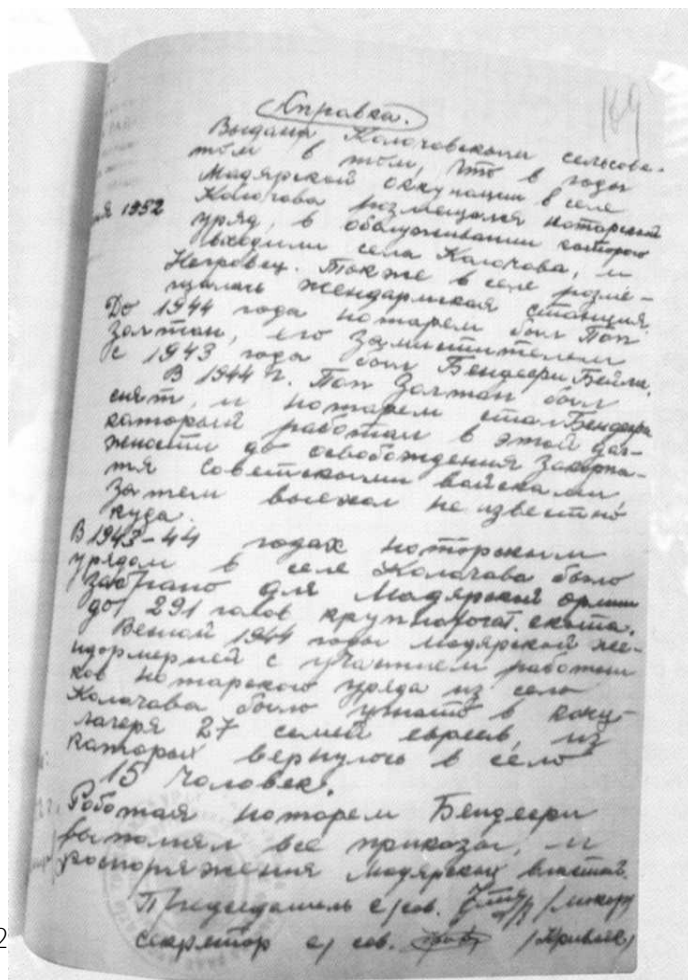 169
Справка.
Выдана Колочовским сельсове-
том в том, что в годы
Мадярской оккупации в селе
Колочава розмещался нотарский
уряд, в обслуживании которого
входили села Колочава, и
Негровец. Также в селе розме-
щалась жендармская станция.
До 1944 года нотарем был Поп
Золтан, его заместителем
с 1943 года был Бендеери Бейла.
В 1944 г. Поп Золтан был
снят, и нотарем стал Бендеери
каторый работал в этой дол-
жности до освобождения Закорпа-
тя Советскими войсками
Затем выехал не известно
куда.
В 1943-44 годах нотарским
урядом в селе Колочава было
забрано для Мадярской армии
до 291 голов крупнорогат. скота.
Весной 1944 года мадярской же-
ндормерией с участием работни
ков нотарского уряда из село
Колочава было угнато в конц-
лагеря 27 семей евреев, из
каторых вернулось в село
15 человек.
Роботая нотарем Бендеери
выполнял все приказы, и
роспоряжения Мадярских властей.
Председатель с/сов.
секретор с/сов.
1952
2